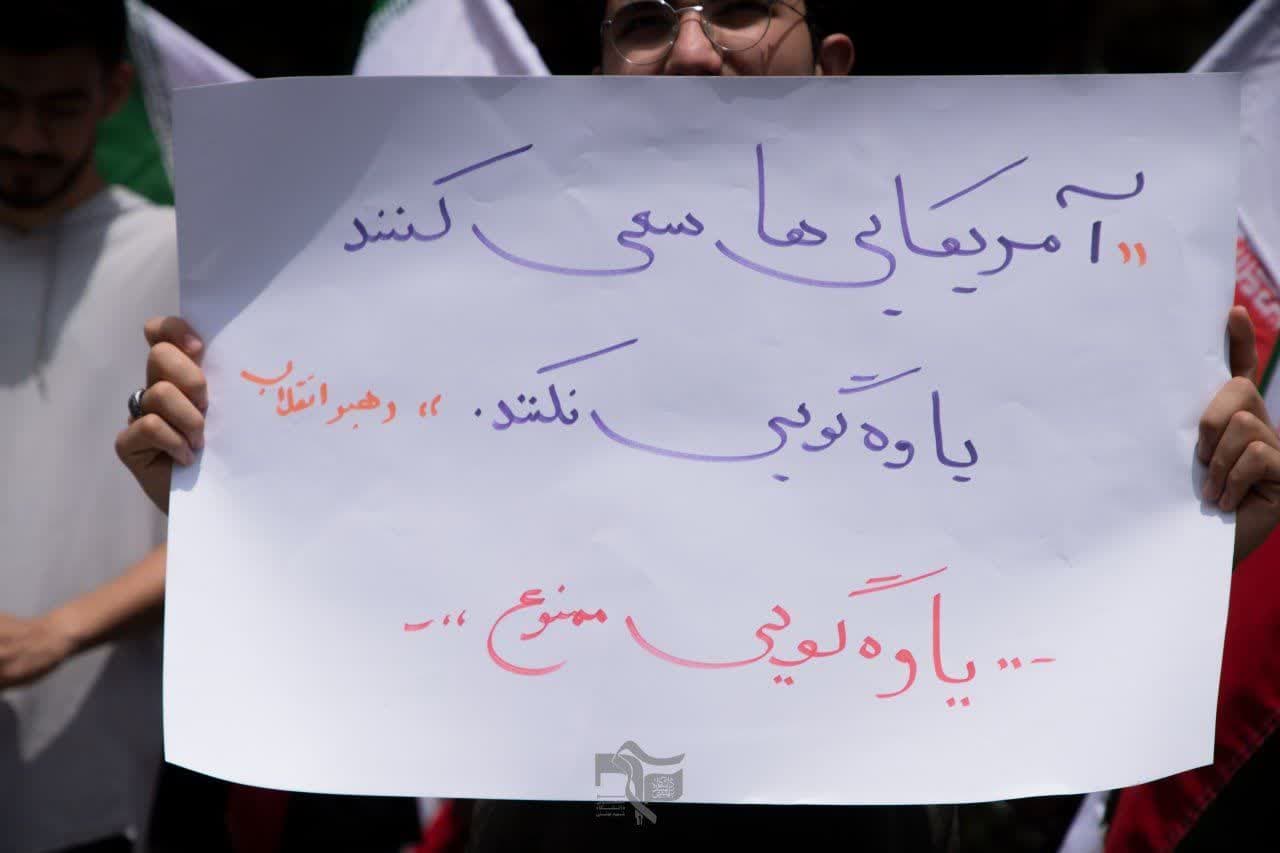 «آمریکایی ها سعی کنند
یاوه گویی نکنند.» رهبر انقلاب
-..«یاوه گویی ممنوع»-